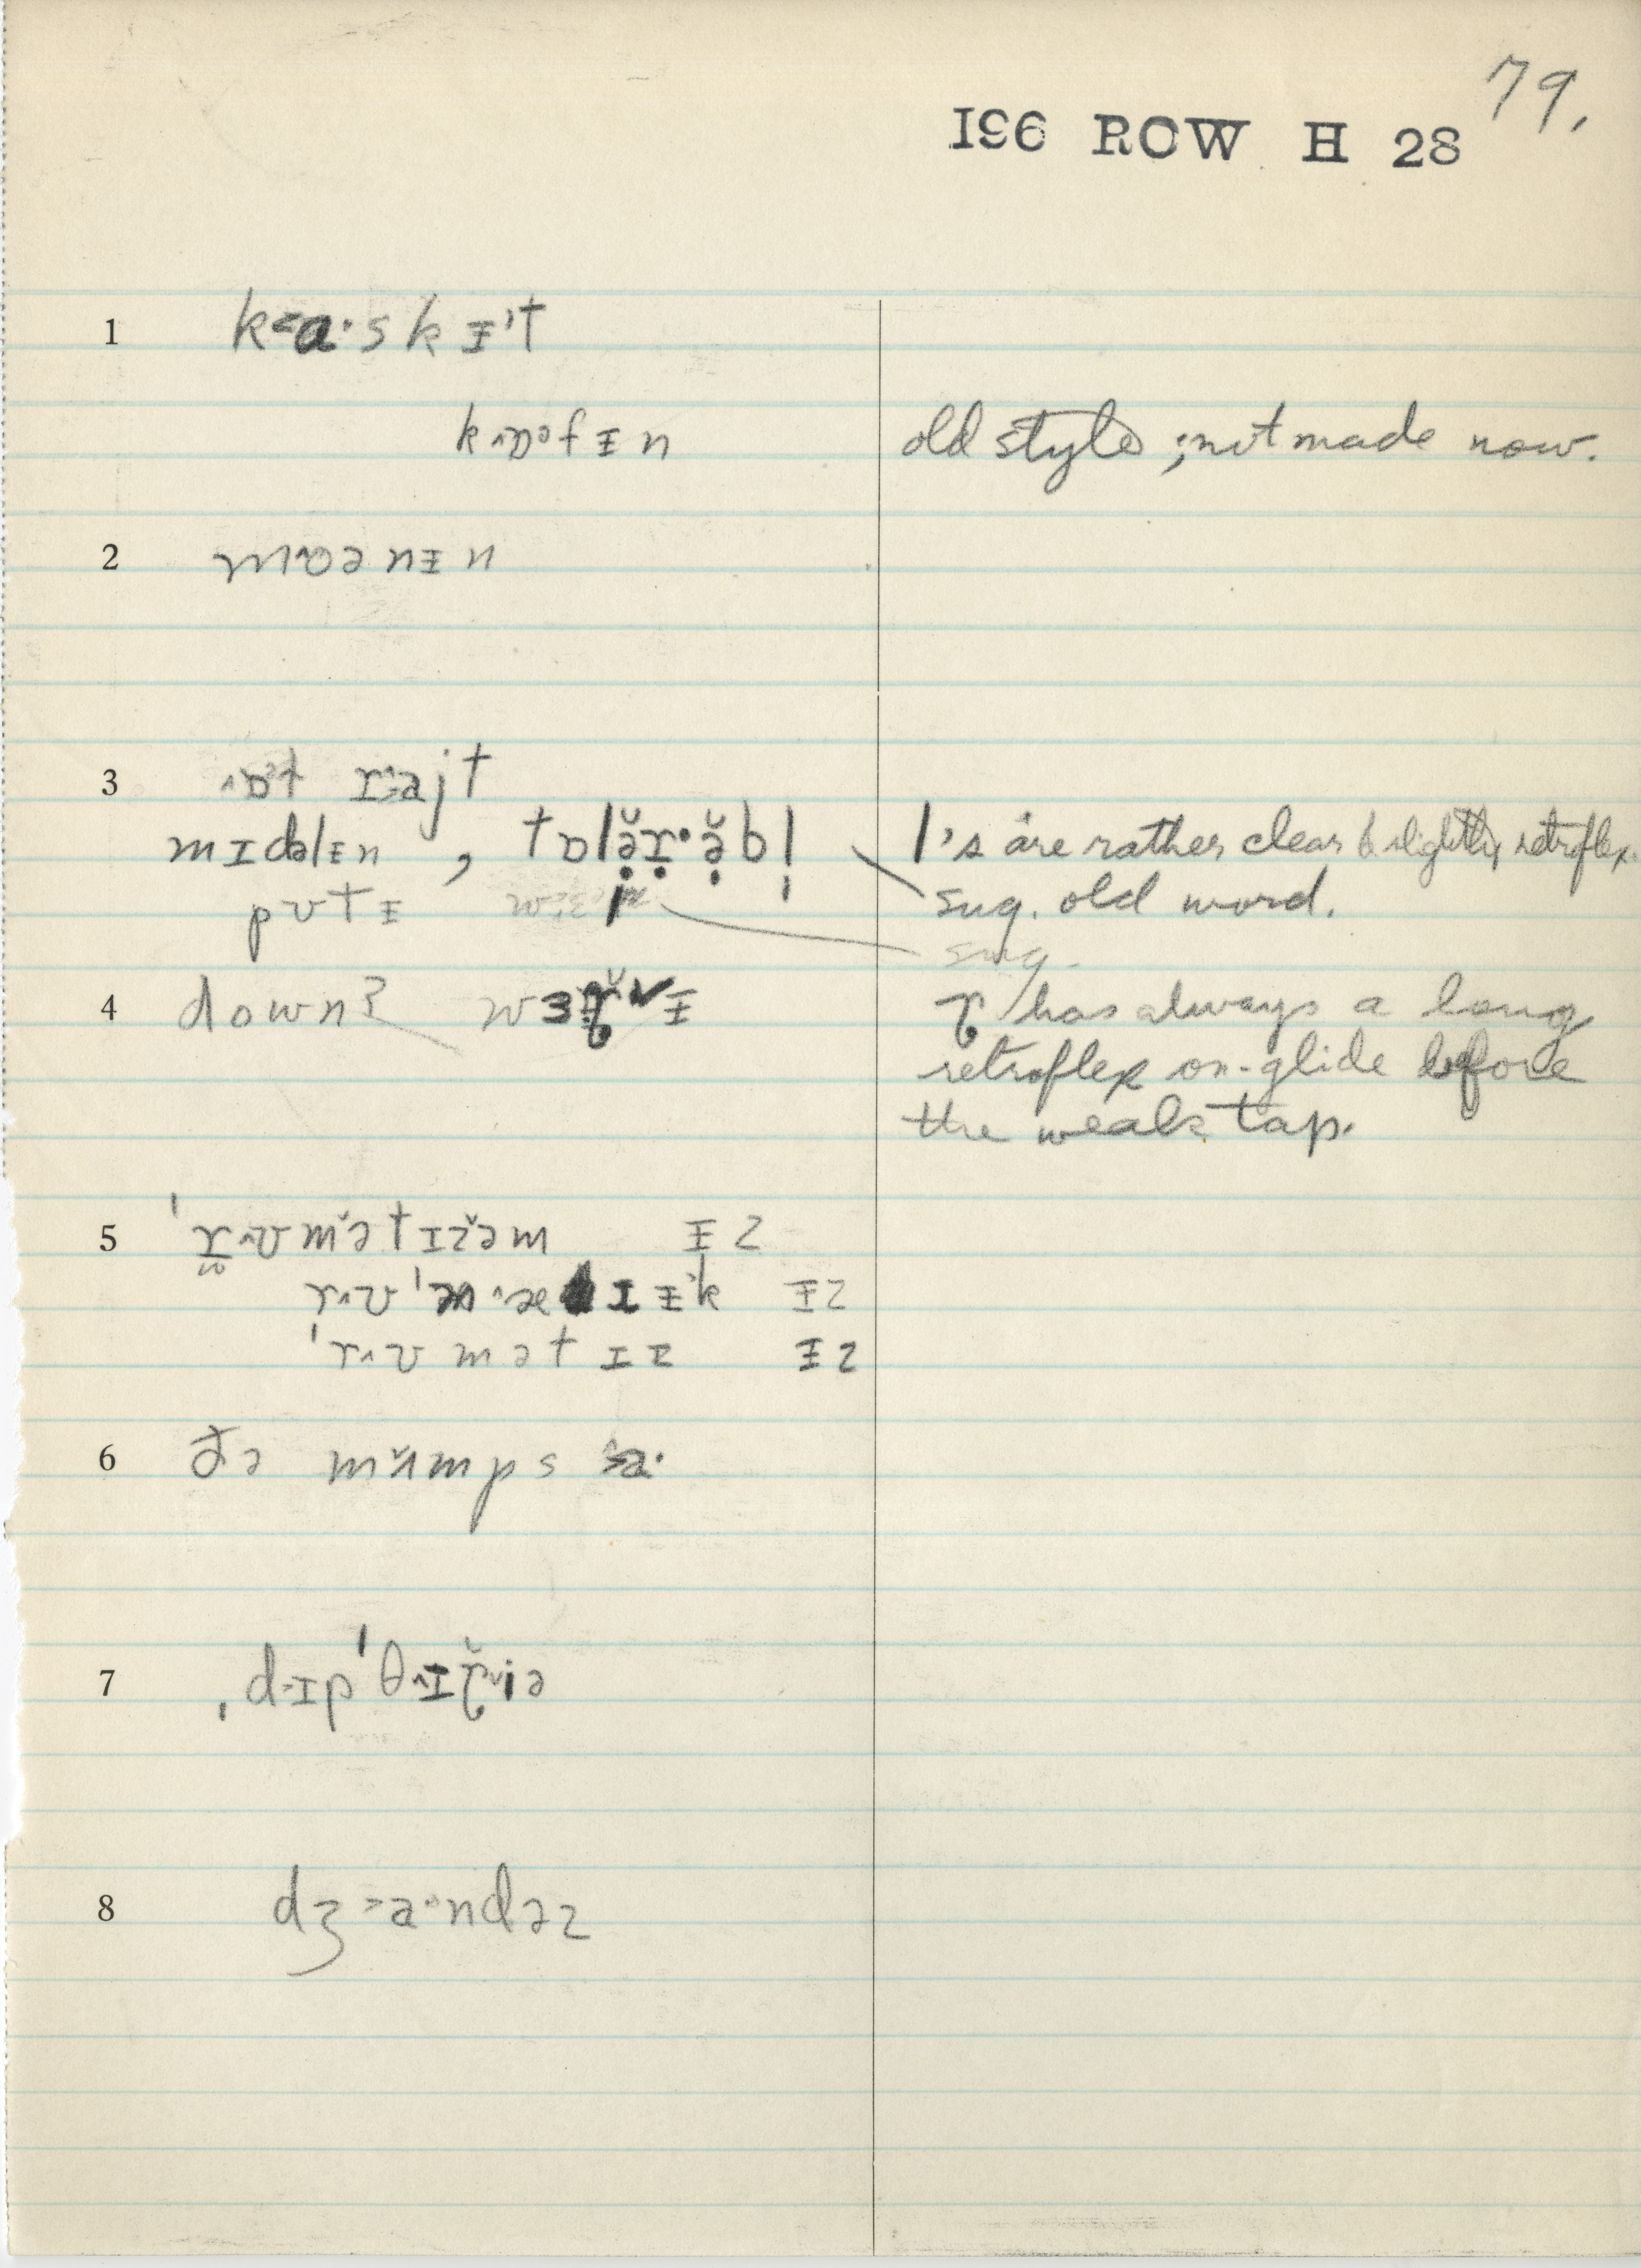 79.
196 ROW H 28
1 k<a·skᵻ't
k^ɒəfᵻn old style; not made now.
2 mɔənᵻn
3 ^ɒt r>ajt
mɪdəlᵻn , tɒlə̣̆ṛ·ə̣̆bl̩ l's are rather clear & slightly retroflex.
pʊtᵻ sug. old word.
sug.
4 down? wɜɽ̆ˇᵻ ɽ has always a long
retroflex on-glide before
the weak tap.
5 'r^ʊm̆ətɪz̆əm ᵻz
r^ʊ'm^ætɪᵻ'k ᵻz
'r^ʊmətɪz ᵻz
6 ðə mʌ̆mps >a·
7 ˌdɪp'θ^ɪɽ̆ˇiə
8 dʒ>a·ndəz